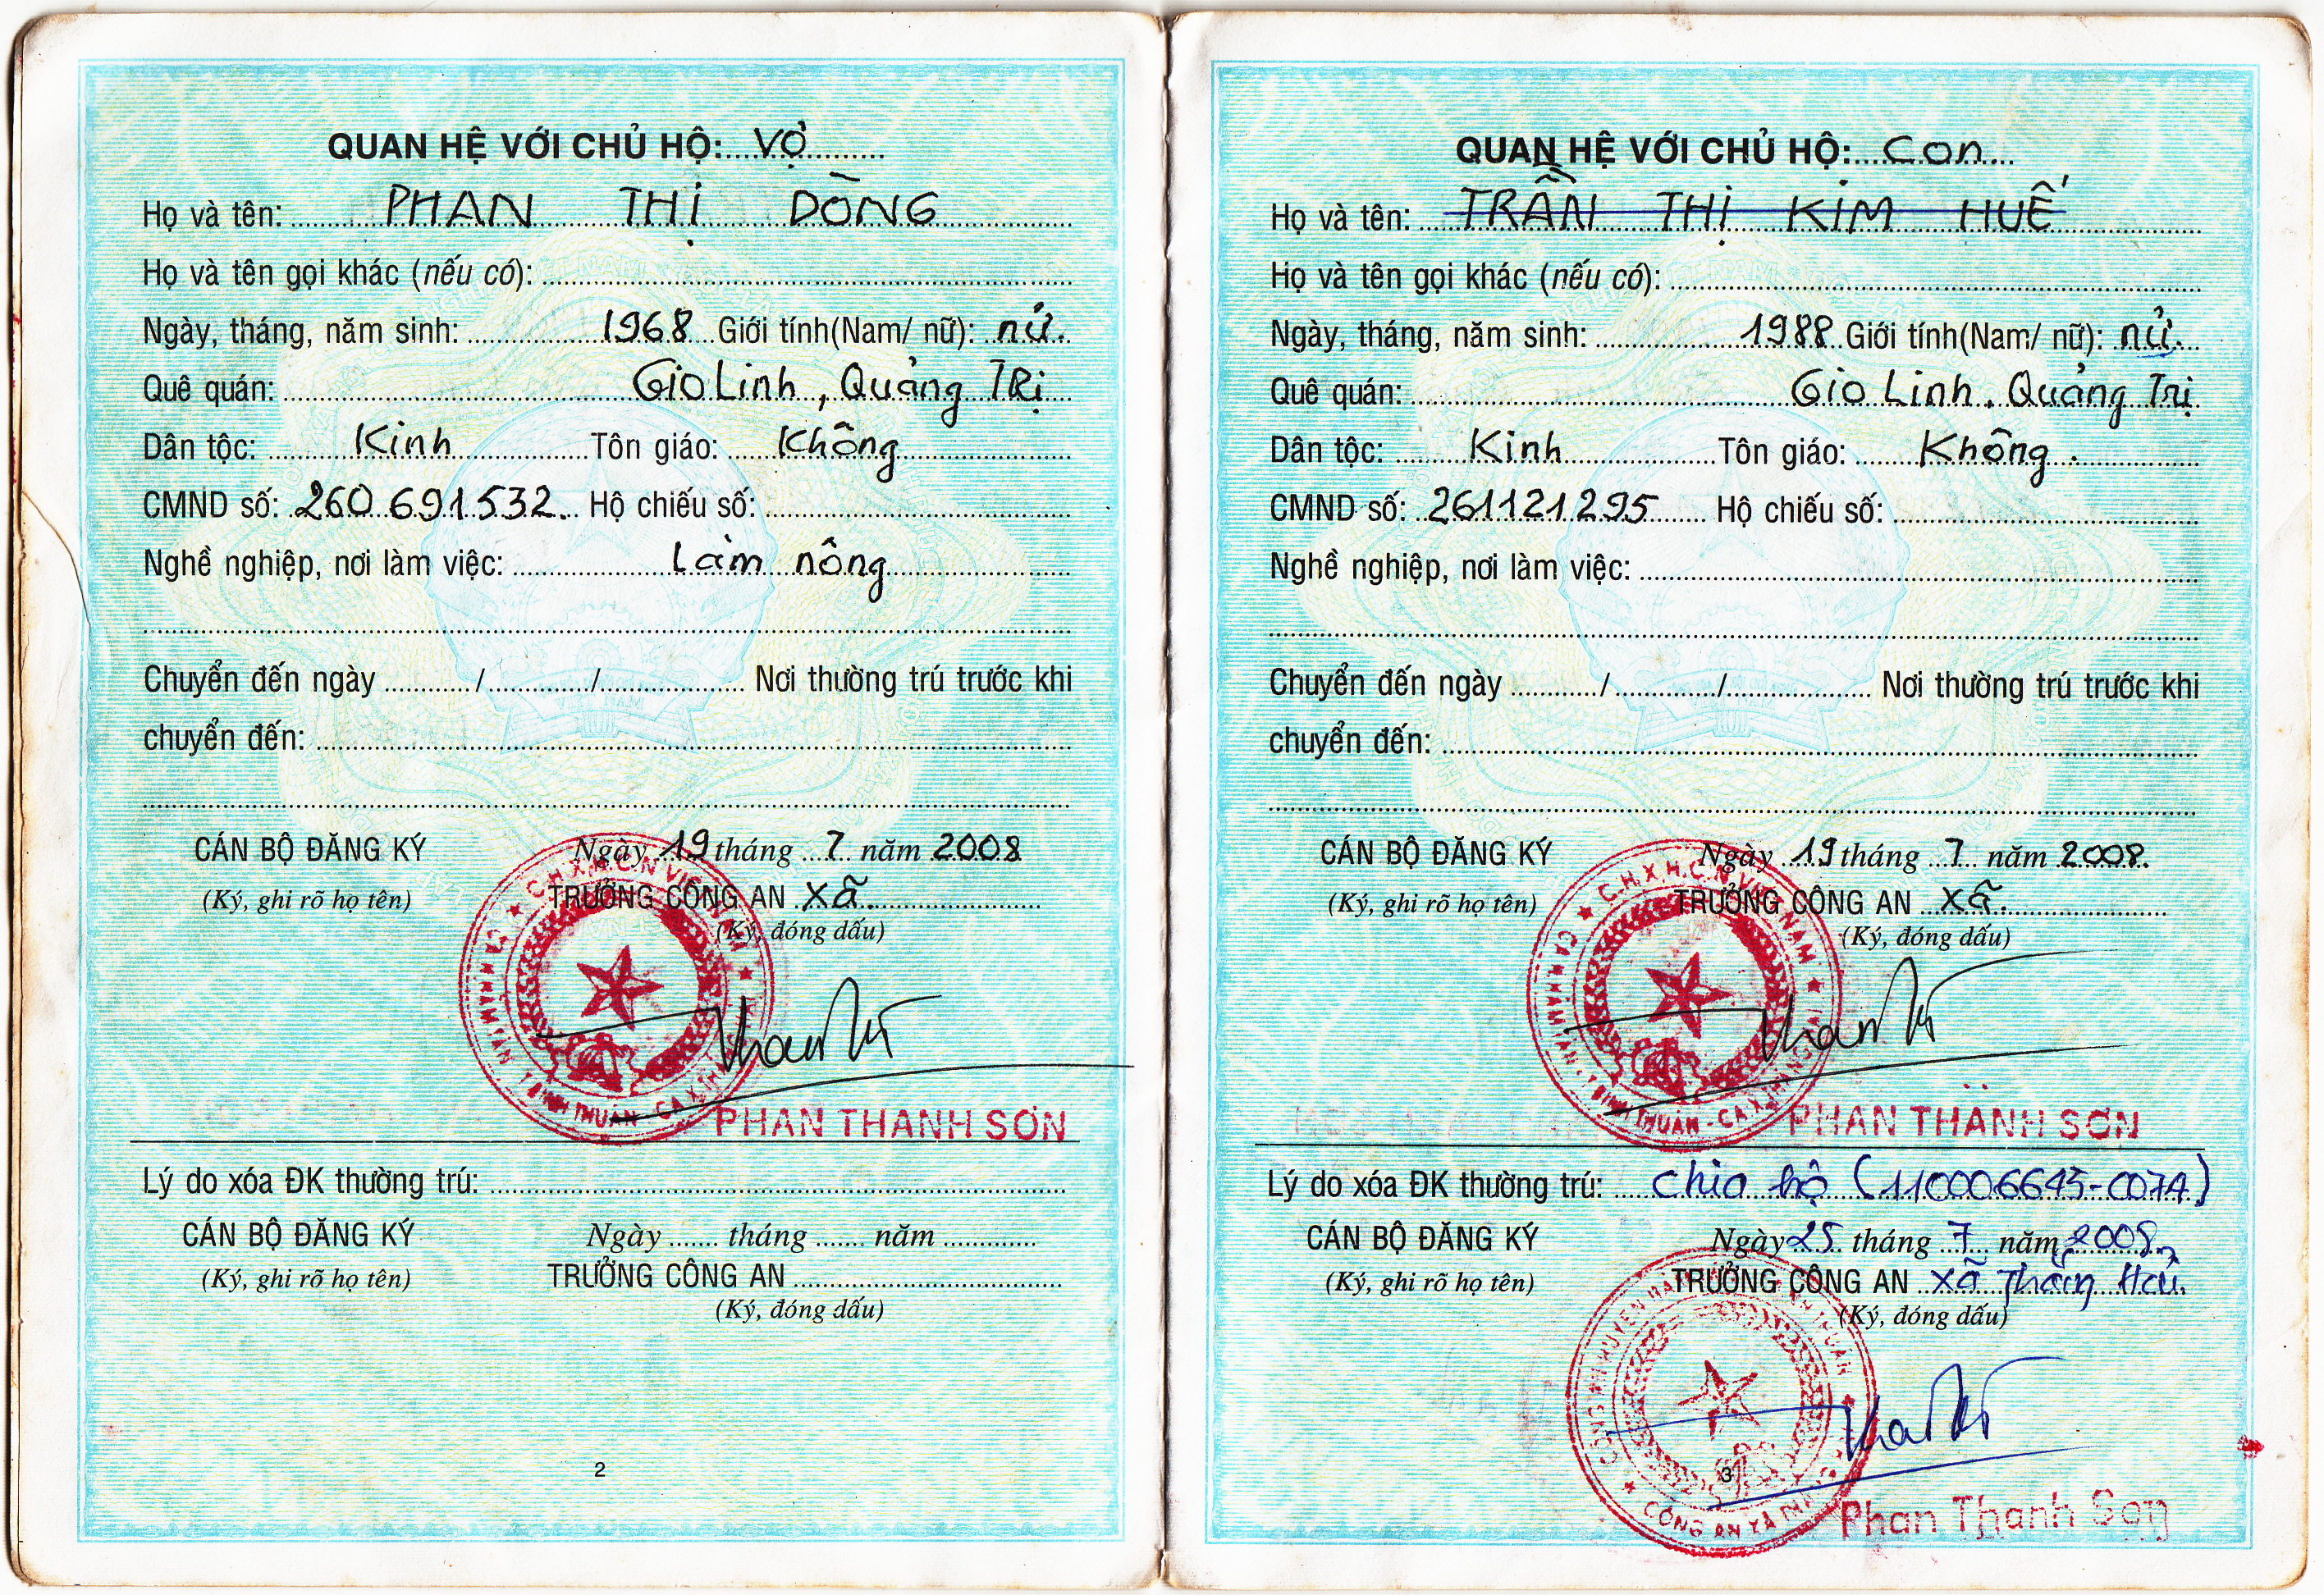 QUAN HỆ VỚI CHỦ HỘ: VỢ
Họ và tên: PHAN THỊ DÒNG
Họ và tên gọi khác (nếu có):
Ngày, tháng, năm sinh: 1968 Giới tính(Nam/ nữ): nữ.
Quê quán: Gio Linh, Quảng Trị
Dân tộc: Kinh Tôn giáo: Không
CMND số: 260 691 532. Hộ chiếu số:
Nghề nghiệp, nơi làm việc: Làm nông
Chuyển đến ngày / / Nơi thường trú trước khi
chuyển đến:
CÁN BỘ ĐĂNG KÝ Ngày 19 tháng 7 năm 2008
(Ký, ghi rõ họ tên) TRƯỞNG CÔNG AN xã.
(Ký, đóng dấu)
C.H.X.H.C.N VIỆT NAM
PHAN THANH SƠN
Lý do xóa ĐK thường trú:
CÁN BỘ ĐĂNG KÝ Ngày tháng năm
(Ký, ghi rõ họ tên) TRƯỞNG CÔNG AN
(Ký, đóng dấu)
2
QUAN HỆ VỚI CHỦ HỘ: Con
Họ và tên: TRẦN THỊ KIM HUẾ
Họ và tên gọi khác (nếu có):
Ngày, tháng, năm sinh: 1988 Giới tính(Nam/ nữ): nữ.
Quê quán: Gio Linh, Quảng Trị
Dân tộc: Kinh Tôn giáo: Không.
CMND số: 261121295 Hộ chiếu số:
Nghề nghiệp, nơi làm việc:
Chuyển đến ngày / / Nơi thường trú trước khi
chuyển đến:
CÁN BỘ ĐĂNG KÝ Ngày 19 tháng 7 năm 2008.
(Ký, ghi rõ họ tên) TRƯỞNG CÔNG AN xã.
(Ký, đóng dấu)
C.H.X.H.C.N VIỆT NAM
PHAN THANH SƠN
Lý do xóa ĐK thường trú: chia hộ (110006645-007A)
CÁN BỘ ĐĂNG KÝ Ngày 25 tháng 7 năm 2008
(Ký, ghi rõ họ tên) TRƯỞNG CÔNG AN xã
(Ký, đóng dấu)
CÔNG AN XÃ
3
Phan Thanh Sơn